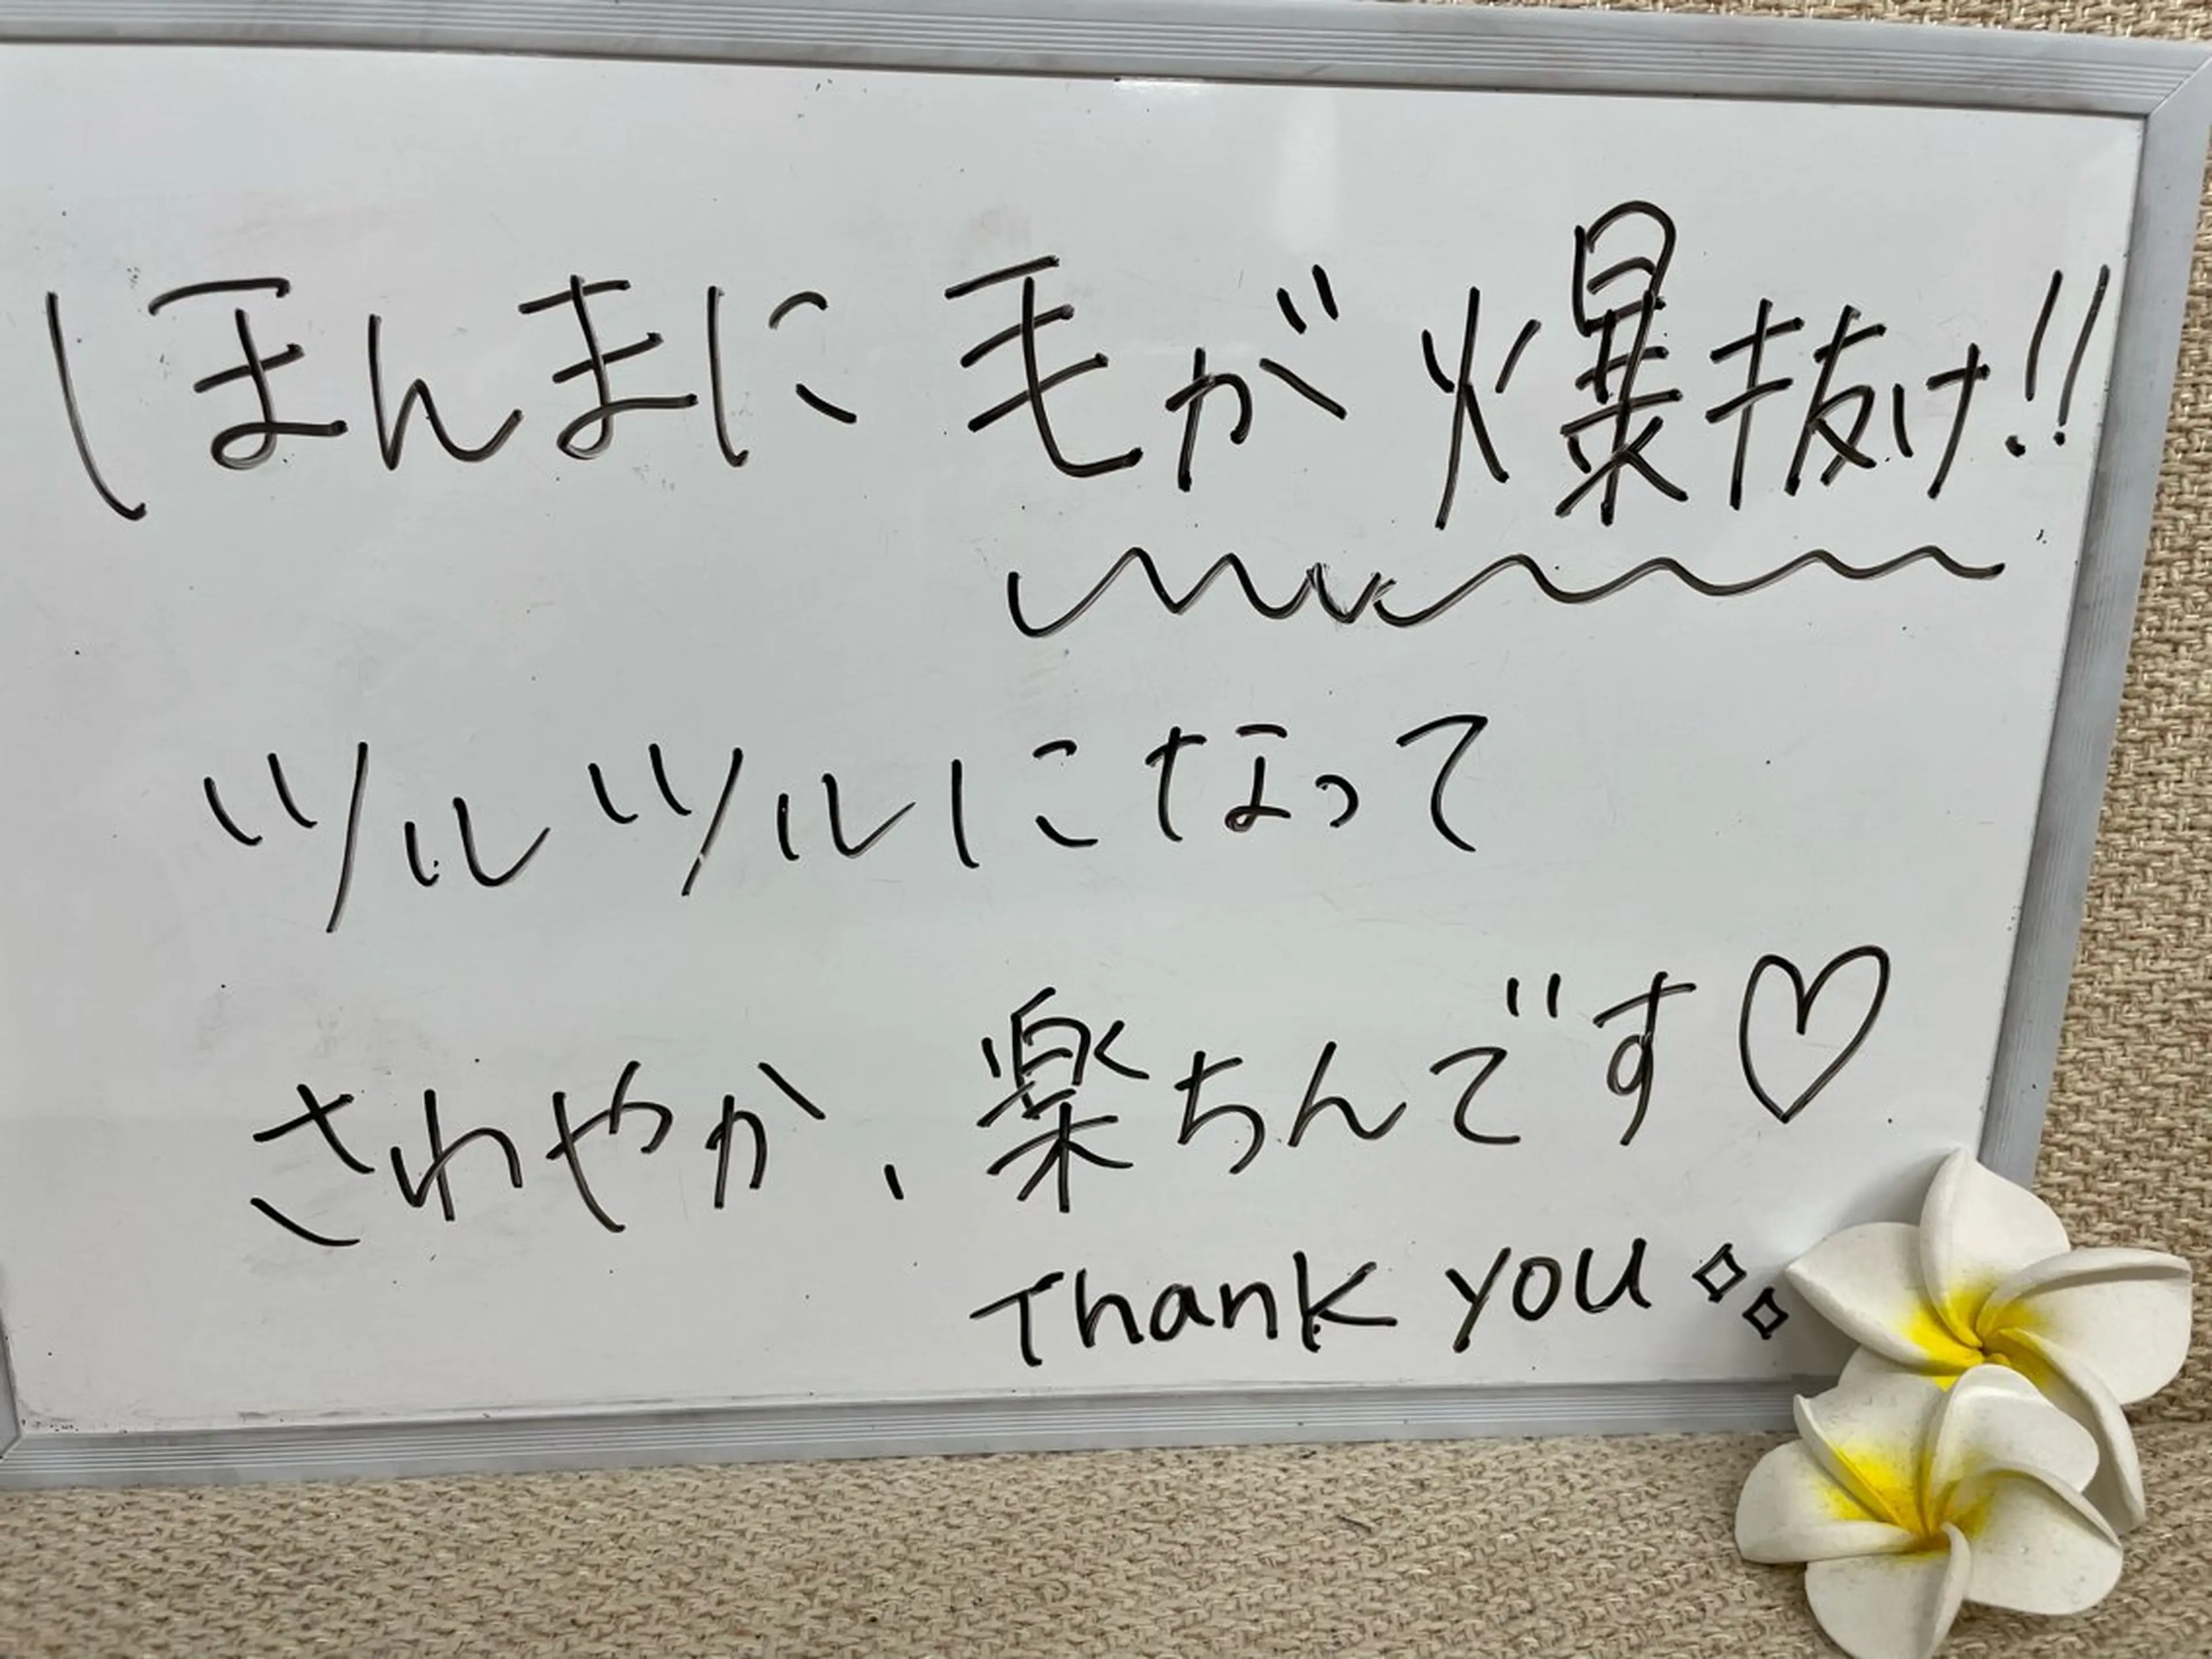 ほんまに毛が爆抜け!!
ツルツルになって
さわやか、楽ちんです♡
Thank you